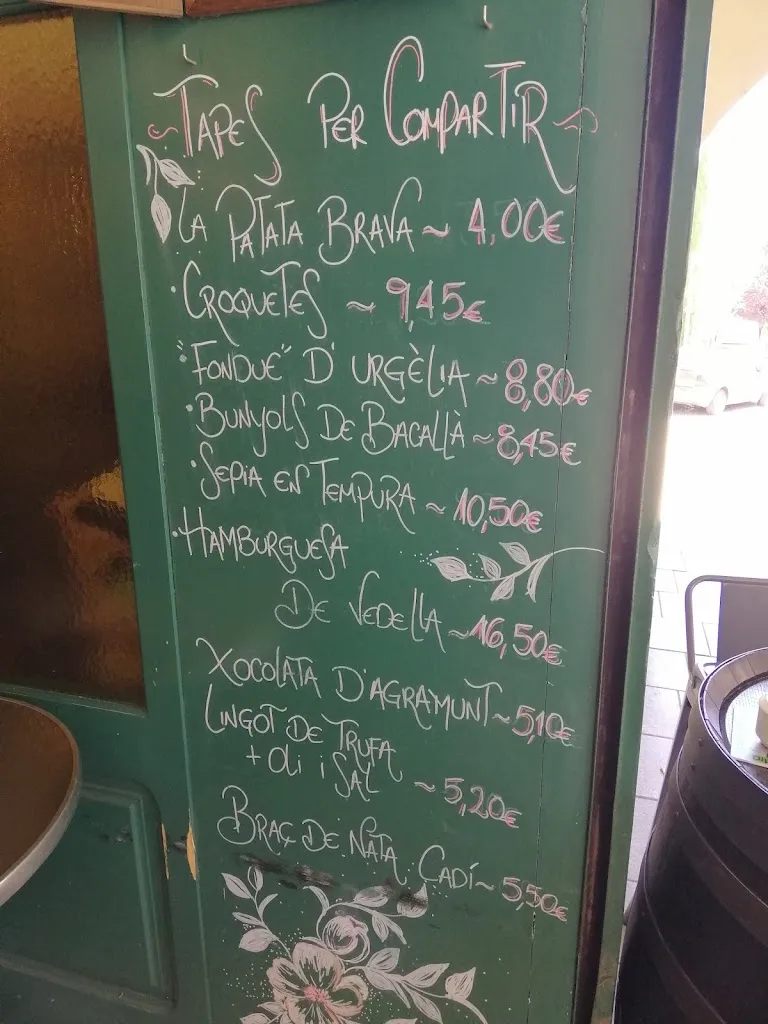 ~ Tapes per Compartir ~
La Patata Brava ~ 4,00€
· Croquetes ~ 9,45€
"Fondue" d'Urgèlia ~ 8,80€
· Bunyols de Bacallà ~ 8,45€
· Sepia en Tempura ~ 10,50€
· Hamburguesa
de Vedella ~ 16,50€
Xocolata d'Agramunt ~ 5,10€
Lingot de Trufa
+ oli i sal ~ 5,20€
Braç de Nata Cadí ~ 5,50€